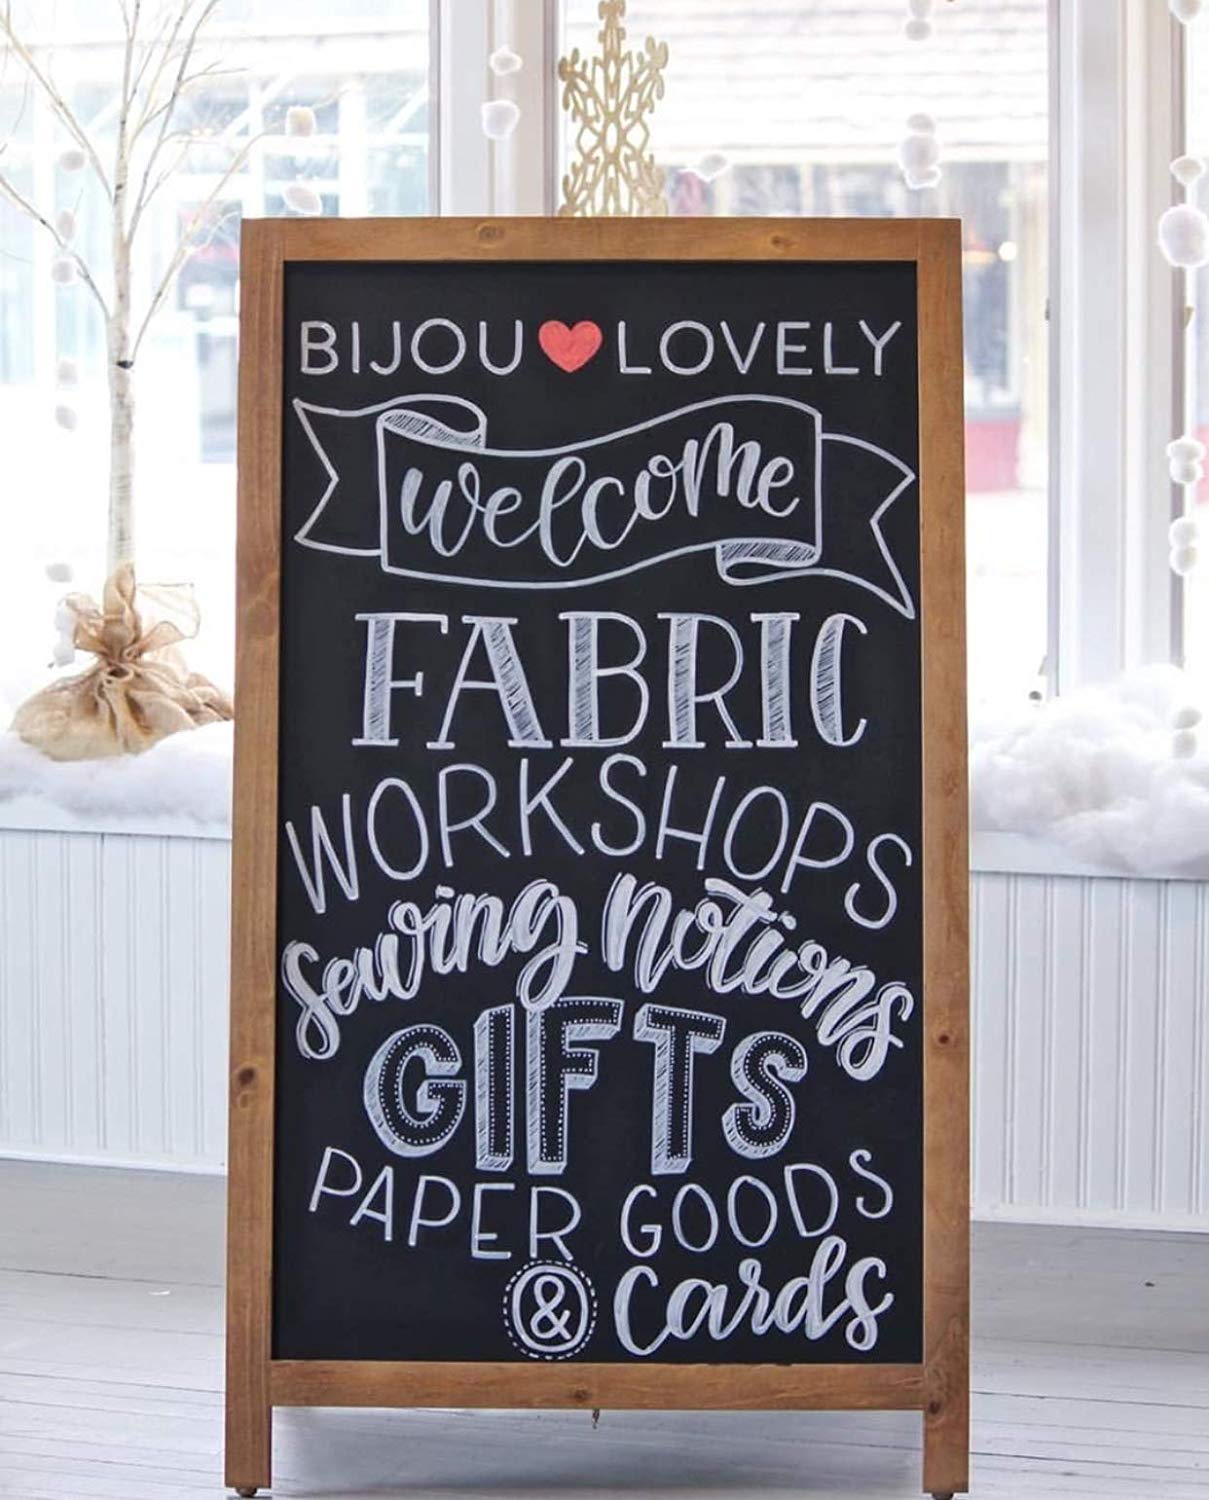 BIJOU ❤ LOVELY
welcome
FABRIC
WORKSHOPS
Sewing Notions
GIFTS
PAPER GOODS
& Cards